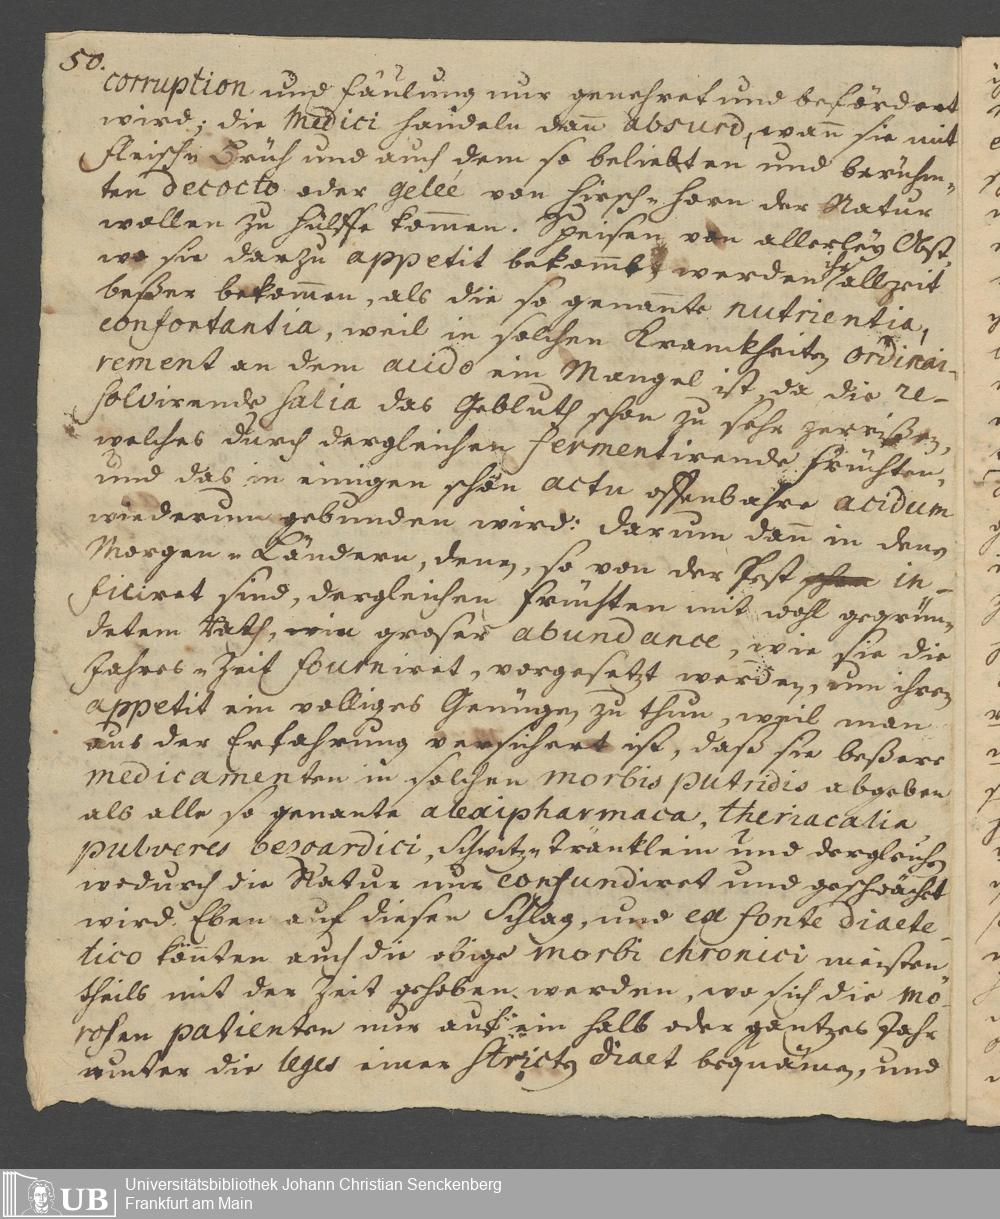 50.
corruption und fäulung nur genehret und befördert
wird; die Medici handeln dan̄ absurd, wan̄ sie mit
fleisch-Brüh und auch dem so beliebten und berühm-
ten decocto oder geleé von hirsch-horn der Natur
wollen zu hülffe kom̄en. Speisen von allerleÿ Obst,
wo sie darzu appetit bekom̄en, werden ihr allzeit
beßer bekom̄en, als die so genan̄te nutrientia,
confortantia, weil in solchen Kranckheiten ordinai-
rement an dem acido ein Mangel ist, da die re-
solvirende salia das Geblüth schon zu sehr zerrißen,
welches durch dergleichen fermentirende früchten,
und das in einigen schon actu offenbahre acidum
wiederum gebunden wird: darum dan̄ in denen
Morgen-Ländern, denen, so von der Pest in-
ficiret sind, dergleichen früchten mit wohl gegrün-
detem Rath, in groser abundance, wie sie die
Jahres-Zeit fourniret, vorgesetzt werden, um ihren
appetit ein völliges Genügen zu thun, weil man
aus der Erfahrung versichert ist, daß sie beßere
medicamenten in solchen morbis putridis abgeben
als alle so genante alexipharmaca, theriacalia,
pulveres bezoardici, Schwitz-Tränklein und dergleichen
wodurch die Natur nur confundiret und geschwächet
wird. Eben auf diesen Schlag, und ex fonte diaete-
tico kön̄ten auch die obige morbi chronici meisten-
theils mit der Zeit gehoben werden, wo sich die mo-
rosen patienten nur auf ein halb oder gantzes Jahr
unter die leges einer stricten diaet bequämen, und
UB
Universitätsbibliothek Johann Christian Senckenberg
Frankfurt am Main